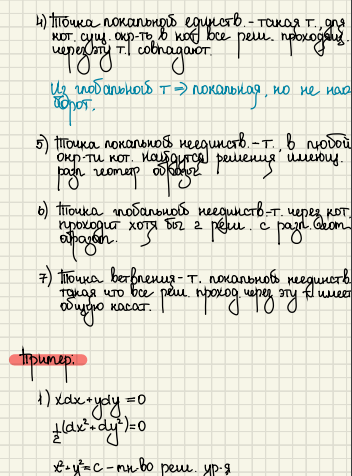 4) Точка локальной единств. - такая т., для
кот. сущ. окр-ть в кот все реш. проходящ.
через эту т. совпадают.
Из глобальной т ⇒ локальная, но не нао
борот.
5) Точка локальной неединств. - т., в любой
окр-ти кот. найдутся решения имеющ.
разл геометр образы
6) Точка глобальной неединств.-т. через кот.
проходит хотя бы 2 реш. с разл. геом.
образом.
7) Точка ветвления - т. локальной неединств
такая что все реш. проход. через эту т имеет
общую касат.
Пример:
1) xdx + ydy = 0
½(dx² + dy²) = 0
x² + y² = c - мн-во реш. ур-я